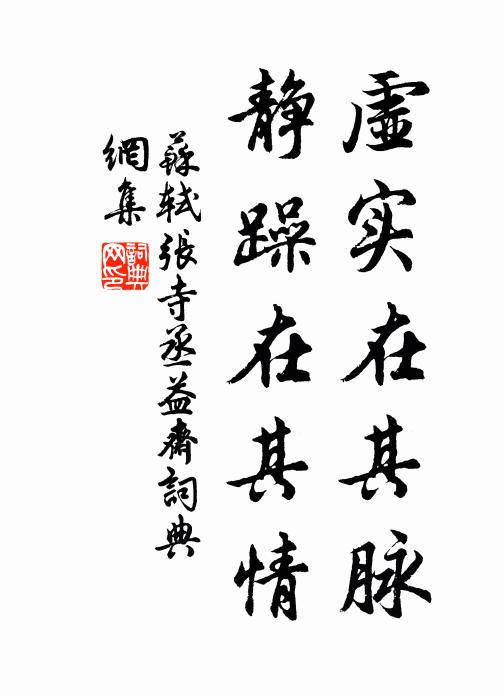 虚实在其脉
静躁在其情
蘇轼張寺丞益齋詞典
網集
詞典
网印